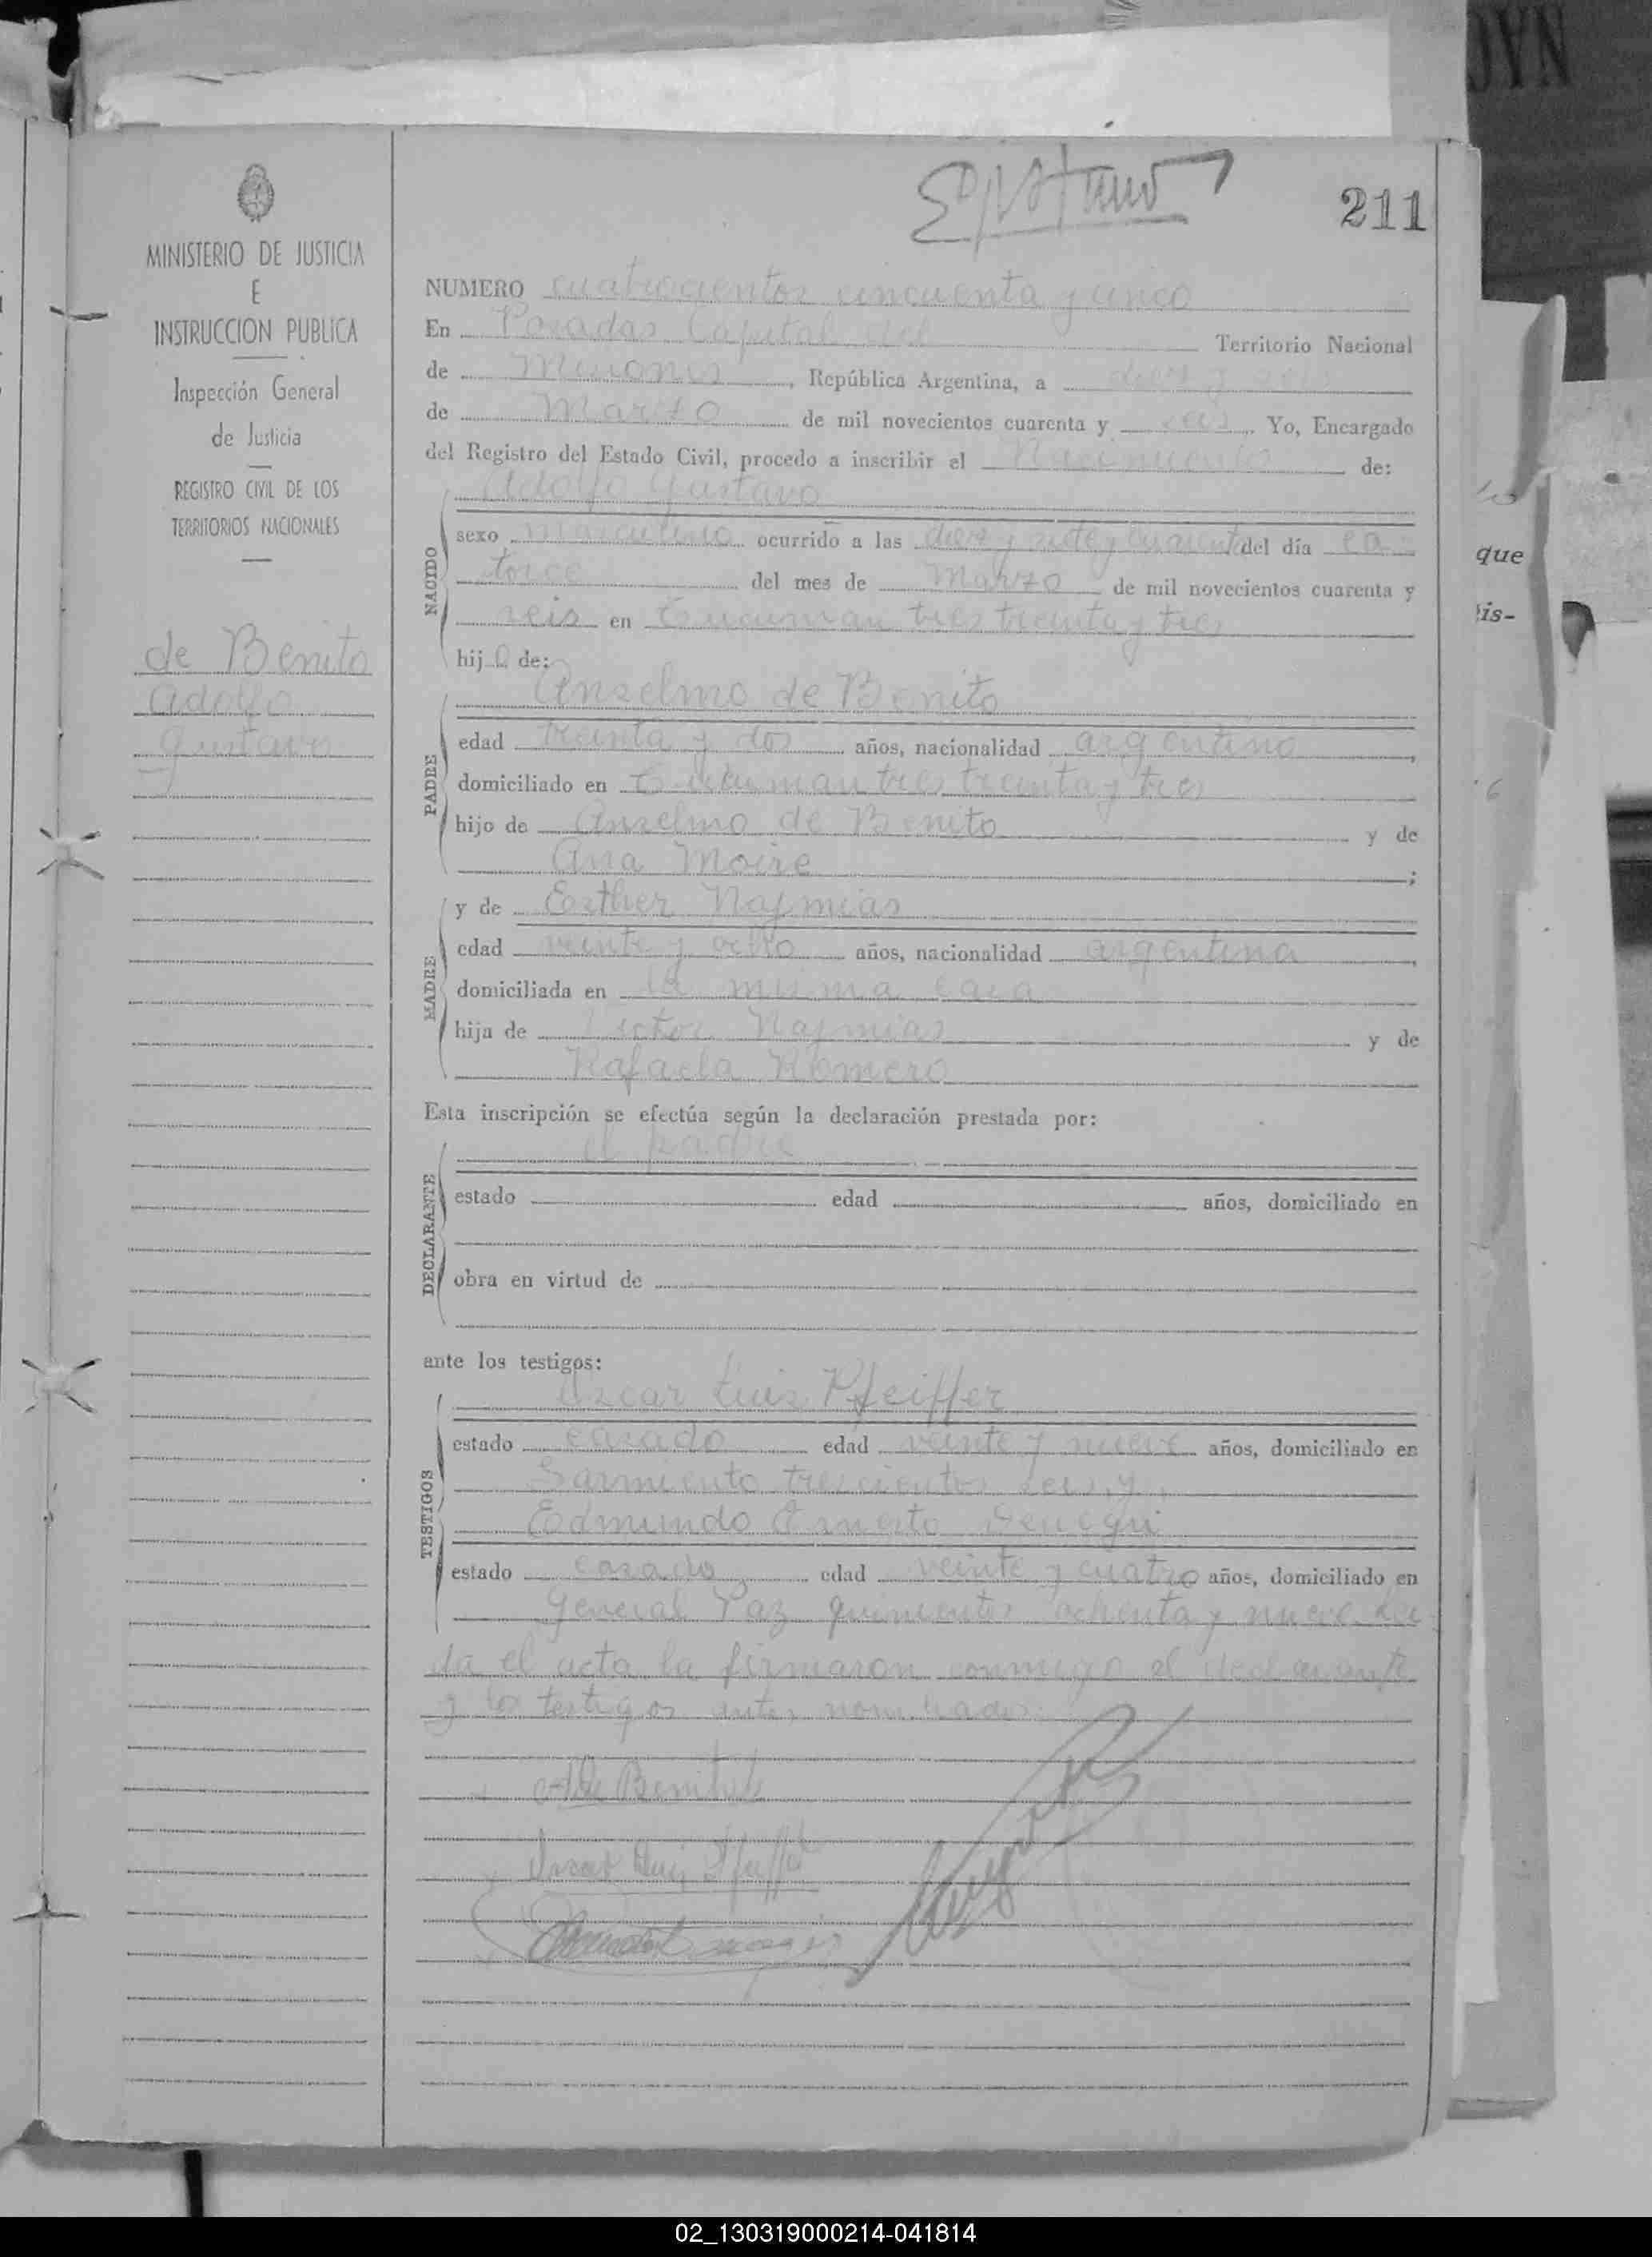 211
MINISTERIO DE JUSTICIA
E
INSTRUCCION PUBLICA
Inspección General
de Justicia
REGISTRO CIVIL DE LOS
TERRITORIOS NACIONALES
de Benito
Adolfo
Gustavo
NUMERO cuatrocientos cincuenta y cinco
En Posadas Capital del Territorio Nacional
de Misiones, República Argentina, a diez y seis
de Marzo de mil novecientos cuarenta y seis. Yo, Encargado
del Registro del Estado Civil, procedo a inscribir el Nacimiento de:
Adolfo Gustavo
NACIDO
sexo masculino ocurrido a las diez y siete y cuarenta del día ca
torce del mes de Marzo de mil novecientos cuarenta y
seis en Tucuman tres treinta y tres
hijo de:
Anselmo de Benito
PADRE
edad treinta y dos años, nacionalidad argentino,
domiciliado en Tucuman tres treinta y tres
hijo de Anselmo de Benito y de
Ana Moire;
MADRE
y de Esther Najmias
edad veinte y ocho años, nacionalidad argentina,
domiciliada en la misma casa
hija de Victor Najmias y de
Rafaela Romero
Esta inscripción se efectúa según la declaración prestada por:
el padre
DECLARANTE
estado edad años, domiciliado en
obra en virtud de
ante los testigos:
Oscar Luis Pfeiffer
TESTIGOS
estado casado edad veinte y nueve años, domiciliado en
Sarmiento trescientos seis, y
Edmundo Ernesto Denegri
estado casado edad veinte y cuatro años, domiciliado en
General Paz quinientos ochenta y nueve. Lei
da el acta la firmaron conmigo el declarante
y los testigos antes nombrados.
que
is-
02_130319000214-041814